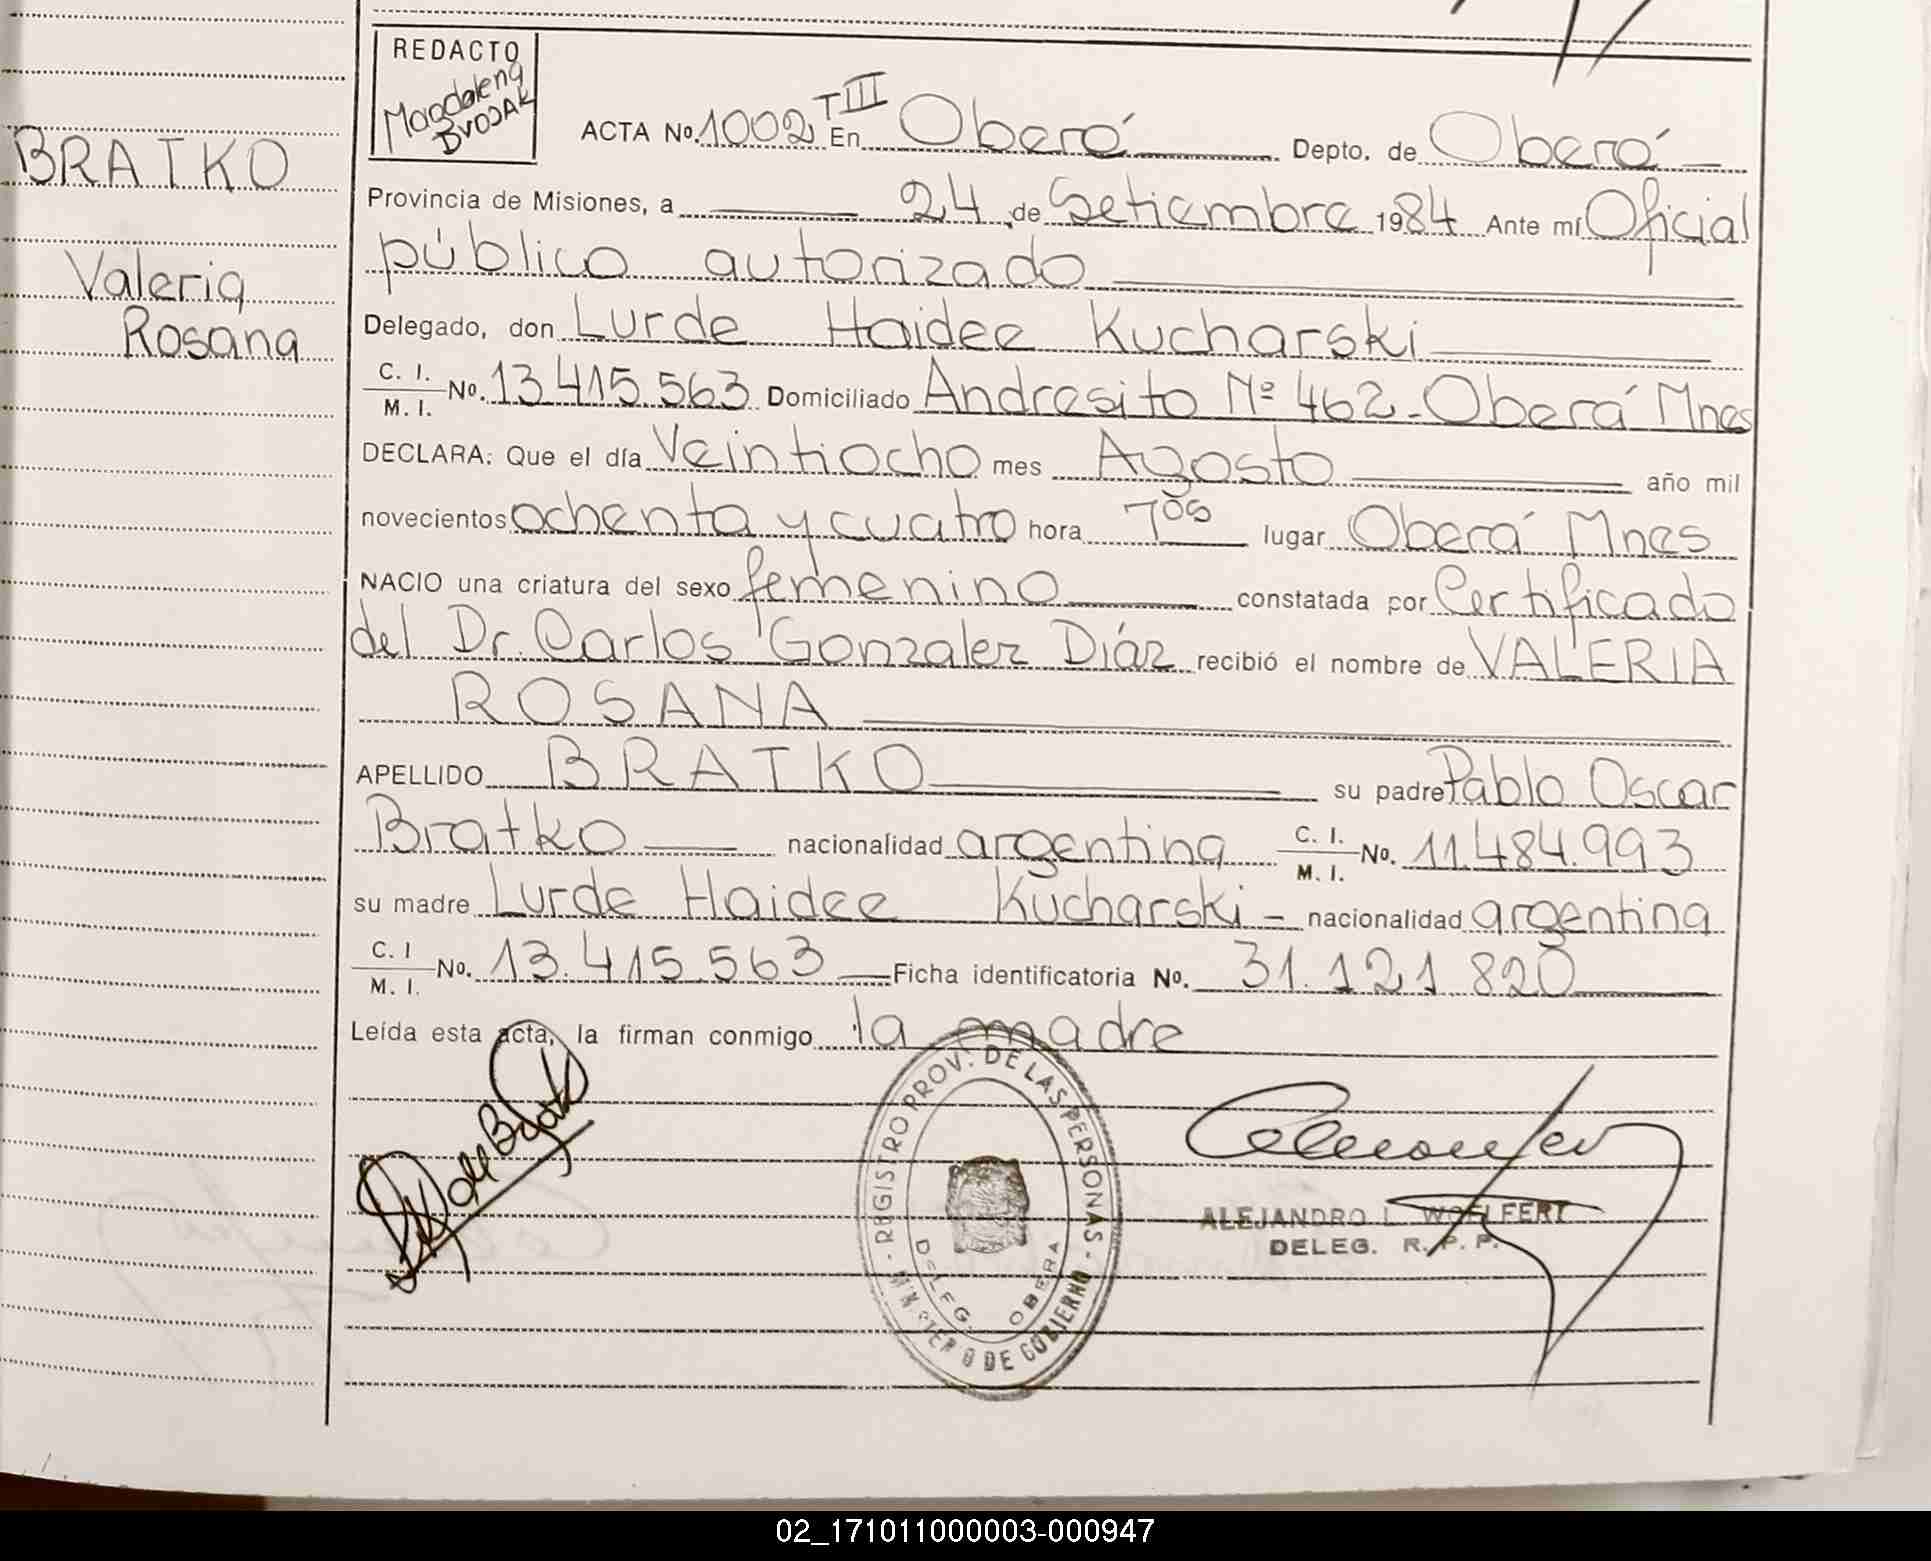 REDACTO
Magdalena
BRATKO
Valeria
Rosana
ACTA No. 1002 T III En Oberá Depto. de Oberá
Provincia de Misiones, a 24 de Setiembre 1984 Ante mí Oficial
público autorizado
Delegado, don Lurde Haidee Kucharski
C. I. / M. I. No. 13.415.563 Domiciliado Andresito Nº 462 - Oberá Mnes
DECLARA: Que el día Veintiocho mes Agosto año mil
novecientos ochenta y cuatro hora 7 05 lugar Oberá Mnes
NACIO una criatura del sexo femenino constatada por Certificado
del Dr. Carlos Gonzalez Diáz recibió el nombre de VALERIA
ROSANA
APELLIDO BRATKO su padre Pablo Oscar
Bratko nacionalidad argentina C. I. / M. I. No. 11.484.993
su madre Lurde Haidee Kucharski - nacionalidad argentina
C. I / M. I. No. 13.415.563 Ficha identificatoria No. 31.121.820
Leída esta acta, la firman conmigo la madre
REGISTRO PROV. DE LAS PERSONAS - MINISTERIO DE GOBIERNO -
DELEG. OBERA
ALEJANDRO L. WOELFERT
DELEG. R. P. P.
02_171011000003-000947